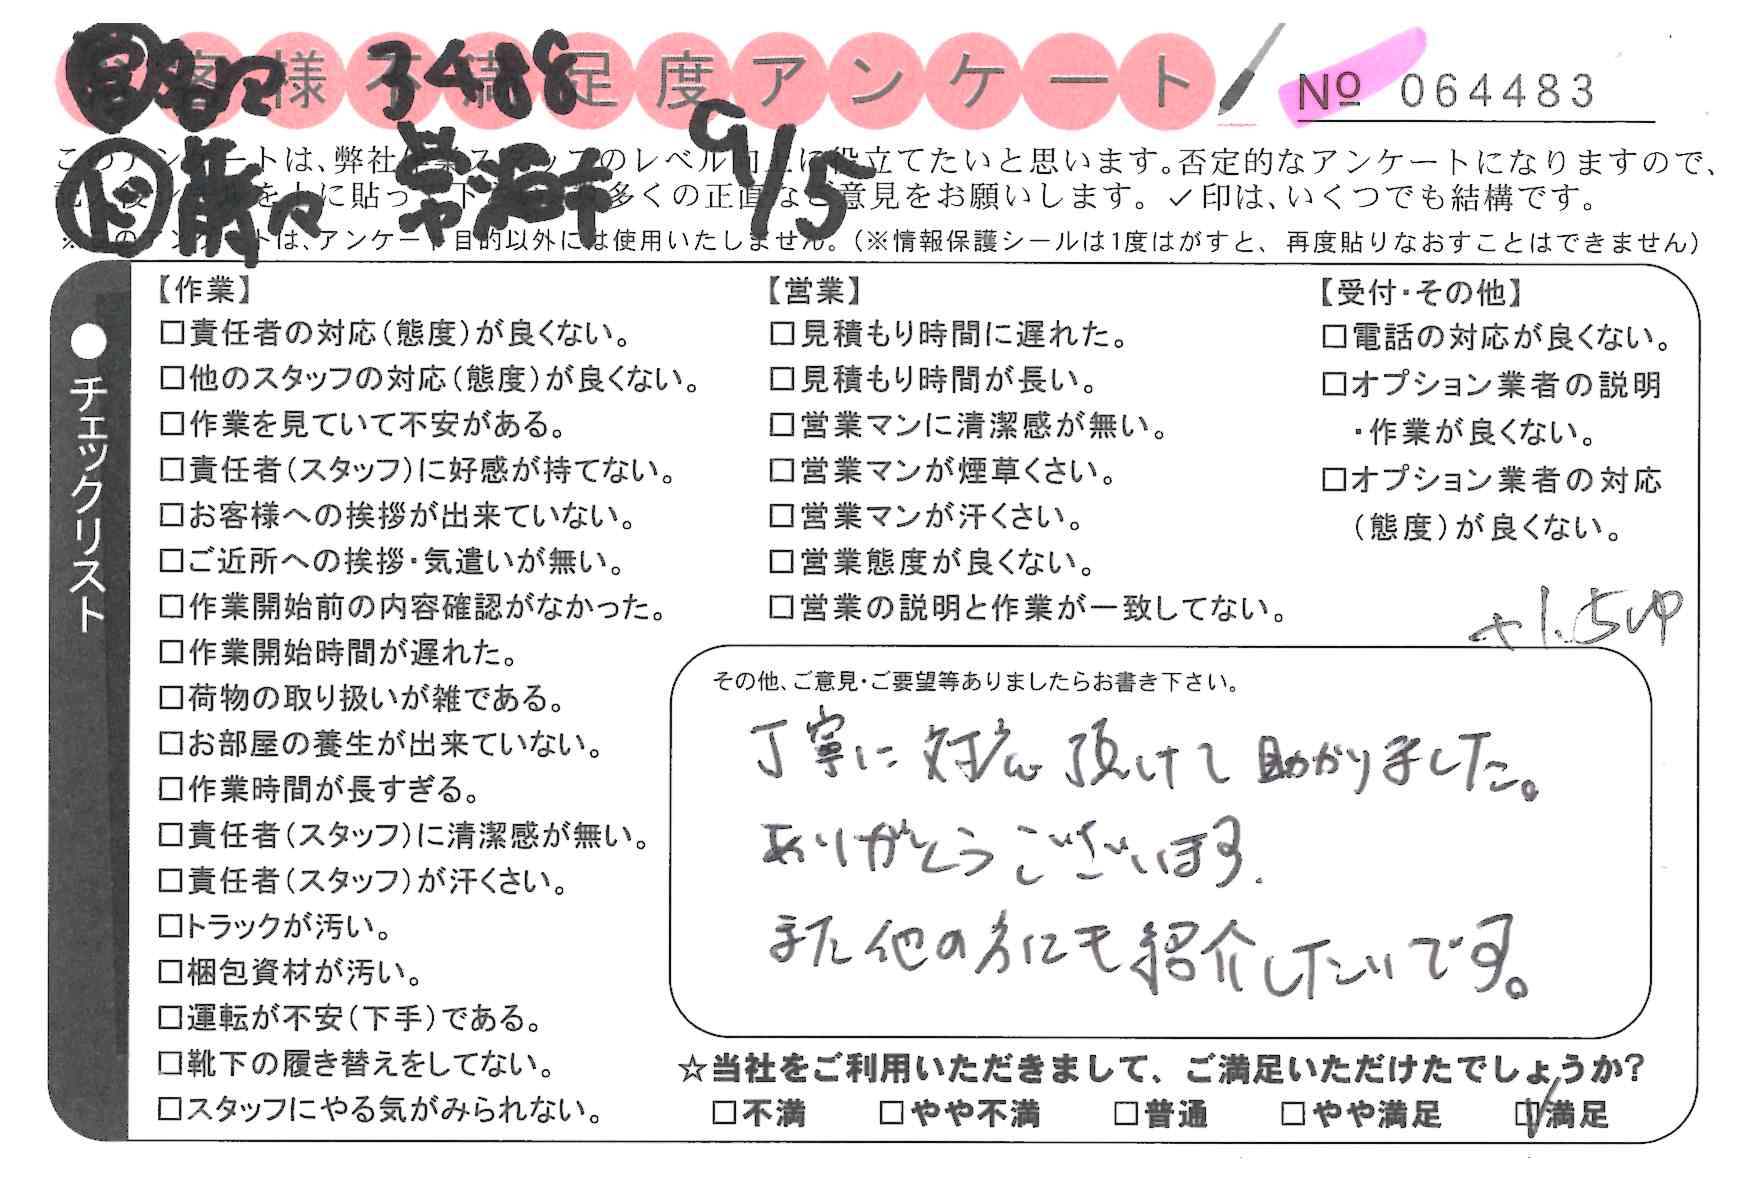 お客様不満足度アンケート
3488
№ 064483
9/15
このアンケートは、弊社作業スタッフのレベル向上に役立てたいと思います。否定的なアンケートになりますので、
を上に貼って下 多くの正直なご意見をお願いします。✓印は、いくつでも結構です。
※このアンケートは、アンケート目的以外には使用いたしません。(※情報保護シールは1度はがすと、再度貼りなおすことはできません)
●チェックリスト
【作業】
□責任者の対応(態度)が良くない。
□他のスタッフの対応(態度)が良くない。
□作業を見ていて不安がある。
□責任者(スタッフ)に好感が持てない。
□お客様への挨拶が出来ていない。
□ご近所への挨拶・気遣いが無い。
□作業開始前の内容確認がなかった。
□作業開始時間が遅れた。
□荷物の取り扱いが雑である。
□お部屋の養生が出来ていない。
□作業時間が長すぎる。
□責任者(スタッフ)に清潔感が無い。
□責任者(スタッフ)が汗くさい。
□トラックが汚い。
□梱包資材が汚い。
□運転が不安(下手)である。
□靴下の履き替えをしてない。
□スタッフにやる気がみられない。
【営業】
□見積もり時間に遅れた。
□見積もり時間が長い。
□営業マンに清潔感が無い。
□営業マンが煙草くさい。
□営業マンが汗くさい。
□営業態度が良くない。
□営業の説明と作業が一致してない。
【受付・その他】
□電話の対応が良くない。
□オプション業者の説明
・作業が良くない。
□オプション業者の対応
(態度)が良くない。
その他、ご意見・ご要望等ありましたらお書き下さい。
丁寧に対応頂けて助かりました。
ありがとうございます.
また他の方にも紹介したいです。
☆当社をご利用いただきまして、ご満足いただけたでしょうか?
□不満 □やや不満 □普通 □やや満足 ☑満足